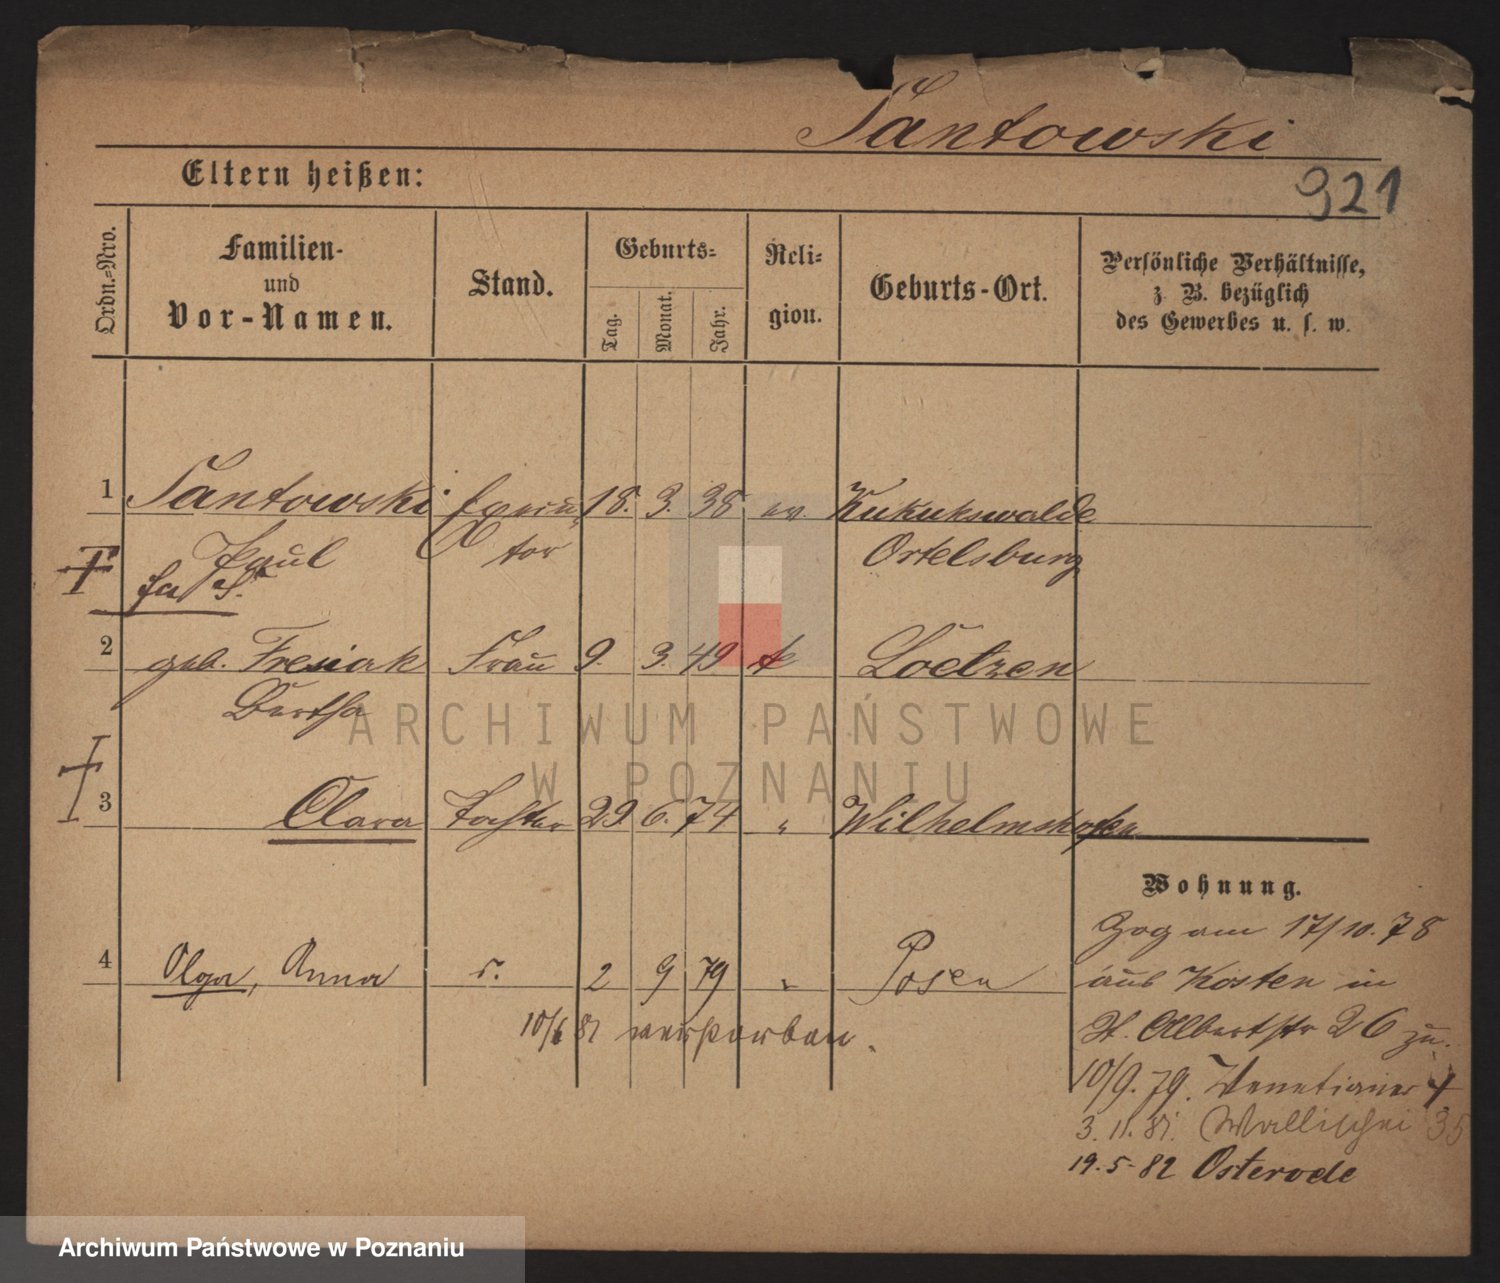 Santowski
Eltern heißen:
921
Ordn.-Nro.
Familien-
und
Vor-Namen.
Stand.
Geburts-
Tag.
Monat.
Jahr.
Reli-
gion.
Geburts-Ort.
Persönliche Verhältnisse,
z. B. bezüglich
des Gewerbes u. s. w.
1 Santowski Execu 18. 3. 38 ev. Kukukswalde
Paul tor Ortelsburg
2 geb. Fresiak Frau 9. 3. 49 Loetzen
Bertha
3 Clara Tochter 29. 6. 74 " Wilhelmshofen
Wohnung.
Zog am 17/10. 78
4 Olga, Anna s. 2 9 79 " Posen
aus Kosten in
10/6 81 verstorben.
St. Albertstr 26 zu.
10/9. 79. Venetianer 4
3. 11. 81. Wallischei 35
19. 5. 82 Osterode
ARCHIWUM PAŃSTWOWE
W POZNANIU
Archiwum Państwowe w Poznaniu